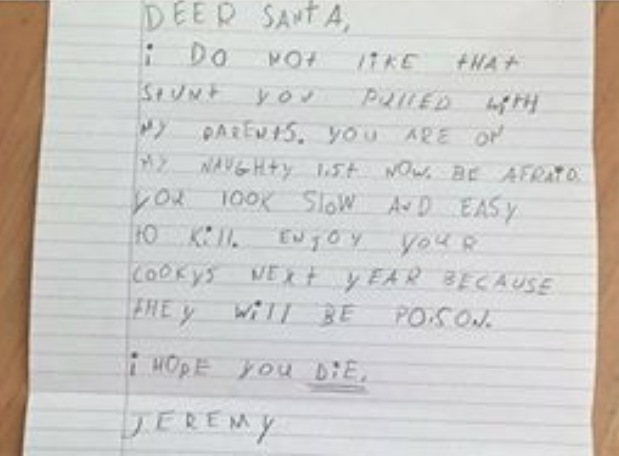 DEER SANTA,
i DO NOT liKE tHAt
StUNt YOU PUllED witH
MY PARENtS. YOU ARE ON
MY NAUGHty list NOW. BE AFRAiD.
YOU lOOK SlOW AND EASY
tO Kill. ENJOY YOUR
COOKYS NEXt YEAR BECAUSE
tHEY Will BE POiSON.
i HOPE YOU DiE.
JEREMY